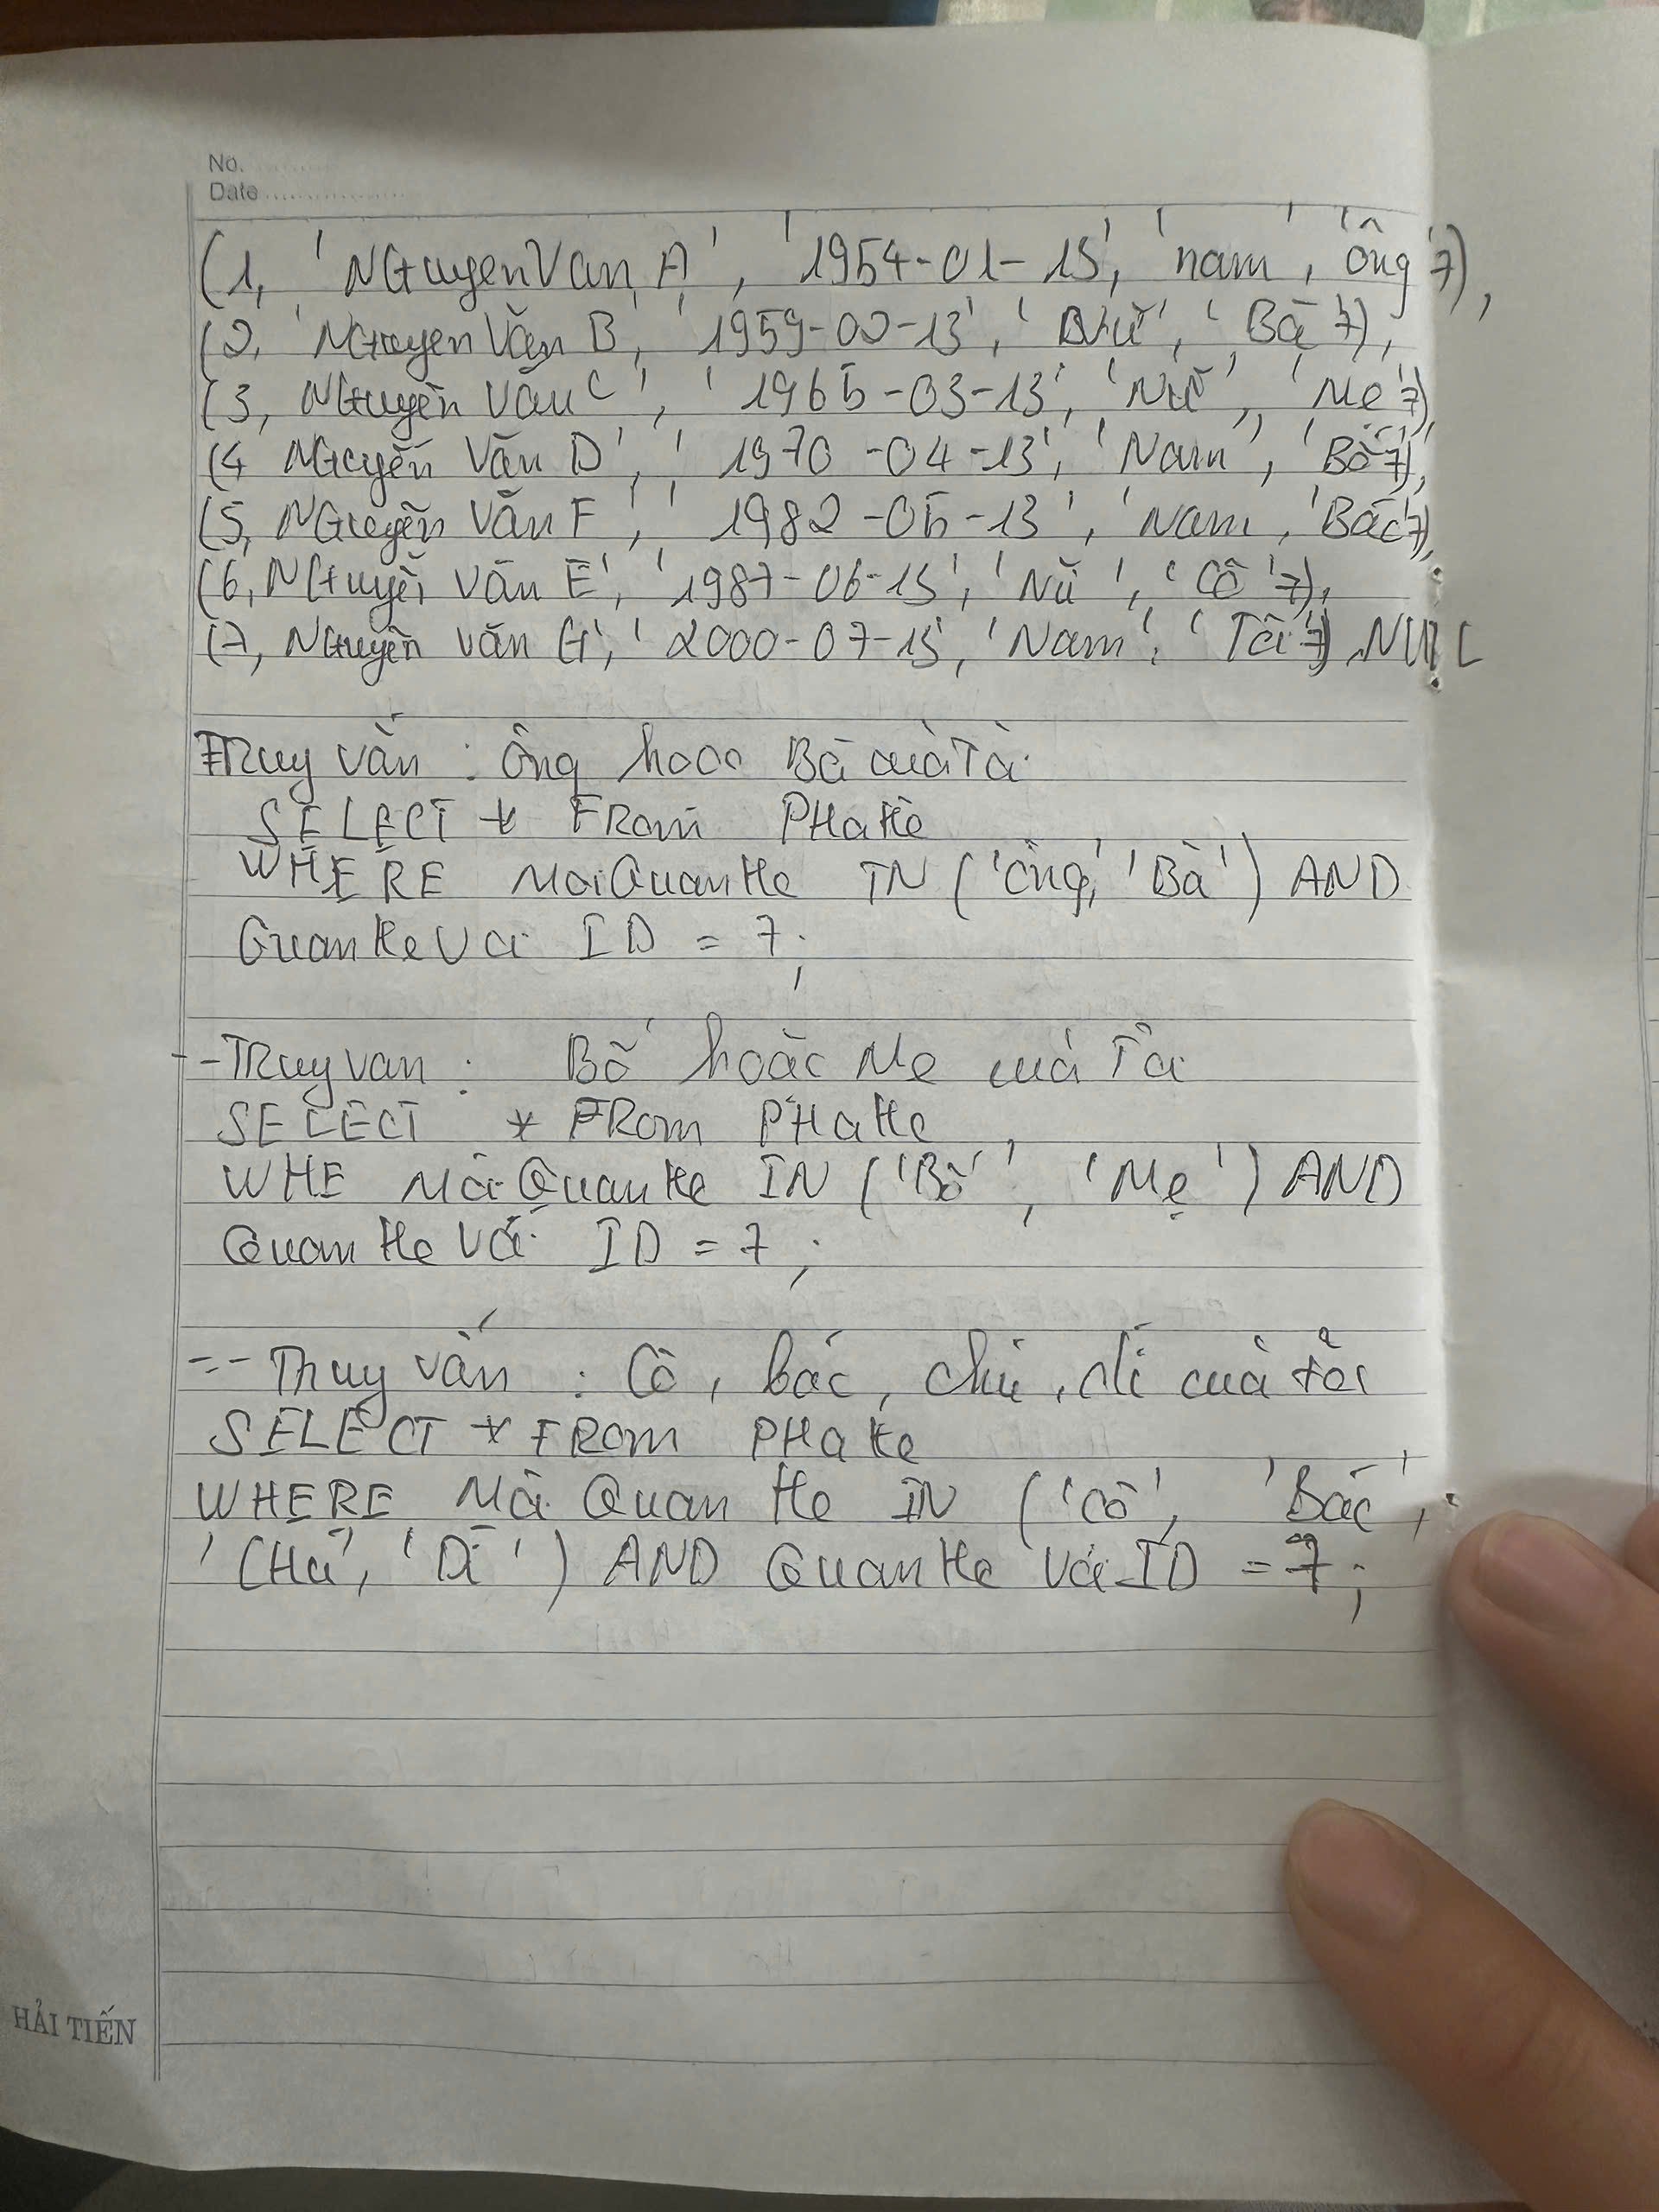 No.
Date
(1, 'NGuyenVan A', '1954-01-13', 'nam', 'ông'7),
(2, 'NGuyen Văn B', '1959-02-13', 'Nữ', 'Bà'7),
(3, NGuyễn Văn C', '1965-03-13', 'Nữ', 'Mẹ'7)
(4 NGuyễn Văn D', '1970-04-13', 'Nam', 'Bố'7),
(5, NGuyễn Văn F', '1982-05-13', 'Nam, 'Bác'7),
(6, NGuyễn Văn E', '1987-06-13', 'Nữ', 'Cô'7),
(7, NGuyễn văn G', '2000-07-13', 'Nam', 'Tôi'7) NULL
Truy vấn : Ông hoặc Bà của Tôi
SELECT * FRom PHaHe
WHERE MoiQuanHe IN ('Ông', 'Bà') AND
QuanHeVoi ID = 7;
--Truy van : Bố hoặc Mẹ của Tôi
SELECT * FRom PHaHe
WHE MoiQuanHe IN ('Bố', 'Mẹ') AND
QuanHe Với ID = 7;
-- Truy vấn : Cô, bác, chú, dì của tôi
SELECT * FRom PHaHe
WHERE Mối Quan He IN ('Cô', 'Bác',
'CHú', 'Dì') AND QuanHe Với ID = 7;
HẢI TIẾN